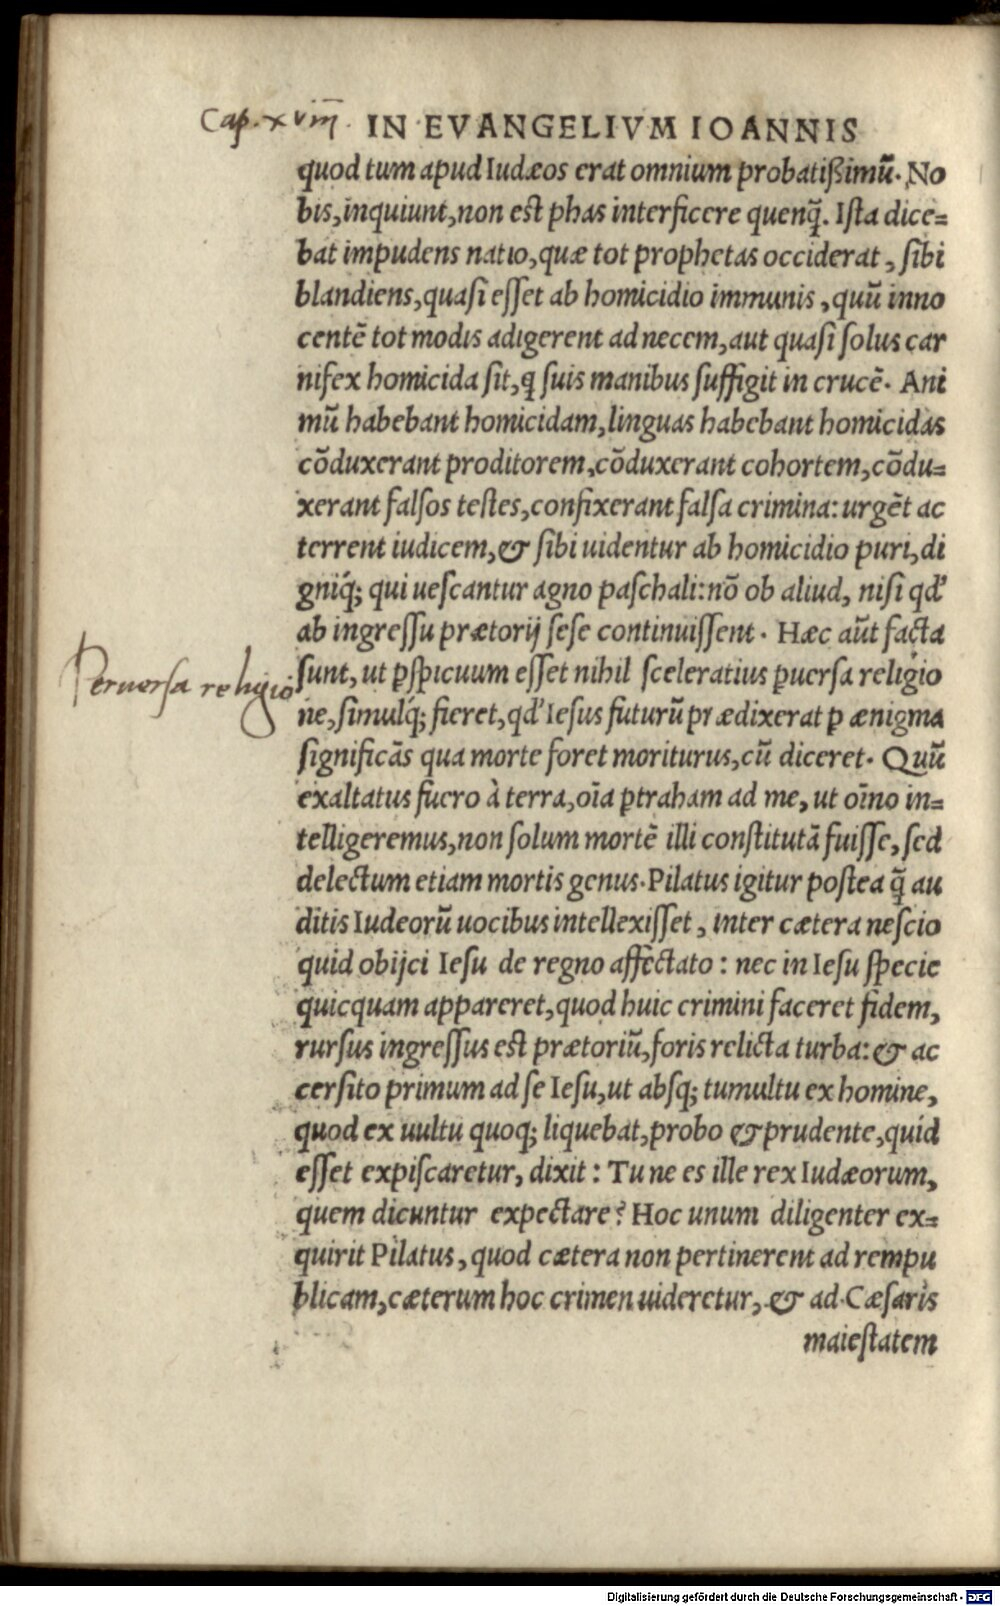 Cap. xviii. IN EVANGELIVM IOANNIS
quod tum apud Iudæos erat omnium probatißimũ. No
bis, inquiunt, non est phas interficere quenq̃. Ista dice=
bat impudens natio, quæ tot prophetas occiderat, sibi
blandiens, quasi esset ab homicidio immunis, quũ inno
centẽ tot modis adigerent ad necem, aut quasi solus car
nifex homicida sit, ꝗ suis manibus suffigit in crucẽ. Ani
mũ habebant homicidam, linguas habebant homicidas
cõduxerant proditorem, cõduxerant cohortem, cõdu=
xerant falsos testes, confixerant falsa crimina: urgẽt ac
terrent iudicem, & sibi uidentur ab homicidio puri, di
gniq́; qui uescantur agno paschali: nõ ob aliud, nisi qd'
ab ingressu prætorij sese continuissent. Hæc aũt facta
sunt, ut ꝑspicuum esset nihil sceleratius ꝑuersa religio
Peruersa religio
ne, simulq́; fieret, qd' Iesus futurũ prædixerat ꝑ ænigma
significãs qua morte foret moriturus, cũ diceret. Quũ
exaltatus fuero à terra, oĩa ꝑtraham ad me, ut oĩno in=
telligeremus, non solum mortẽ illi constitutã fuisse, sed
delectum etiam mortis genus. Pilatus igitur postea q̃ au
ditis Iudeorũ uocibus intellexisset, inter cætera nescio
quid obijci Iesu de regno affectato: nec in Iesu specie
quicquam appareret, quod huic crimini faceret fidem,
rursus ingressus est prætoriũ, foris relicta turba: & ac
cersito primum ad se Iesu, ut absq; tumultu ex homine,
quod ex uultu quoq; liquebat, probo & prudente, quid
esset expiscaretur, dixit: Tu ne es ille rex Iudæorum,
quem dicuntur expectare? Hoc unum diligenter ex=
quirit Pilatus, quod cætera non pertinerent ad rempu
blicam, cæterum hoc crimen uideretur, & ad Cæsaris
maiestatem
Digitalisierung gefördert durch die Deutsche Forschungsgemeinschaft - DFG